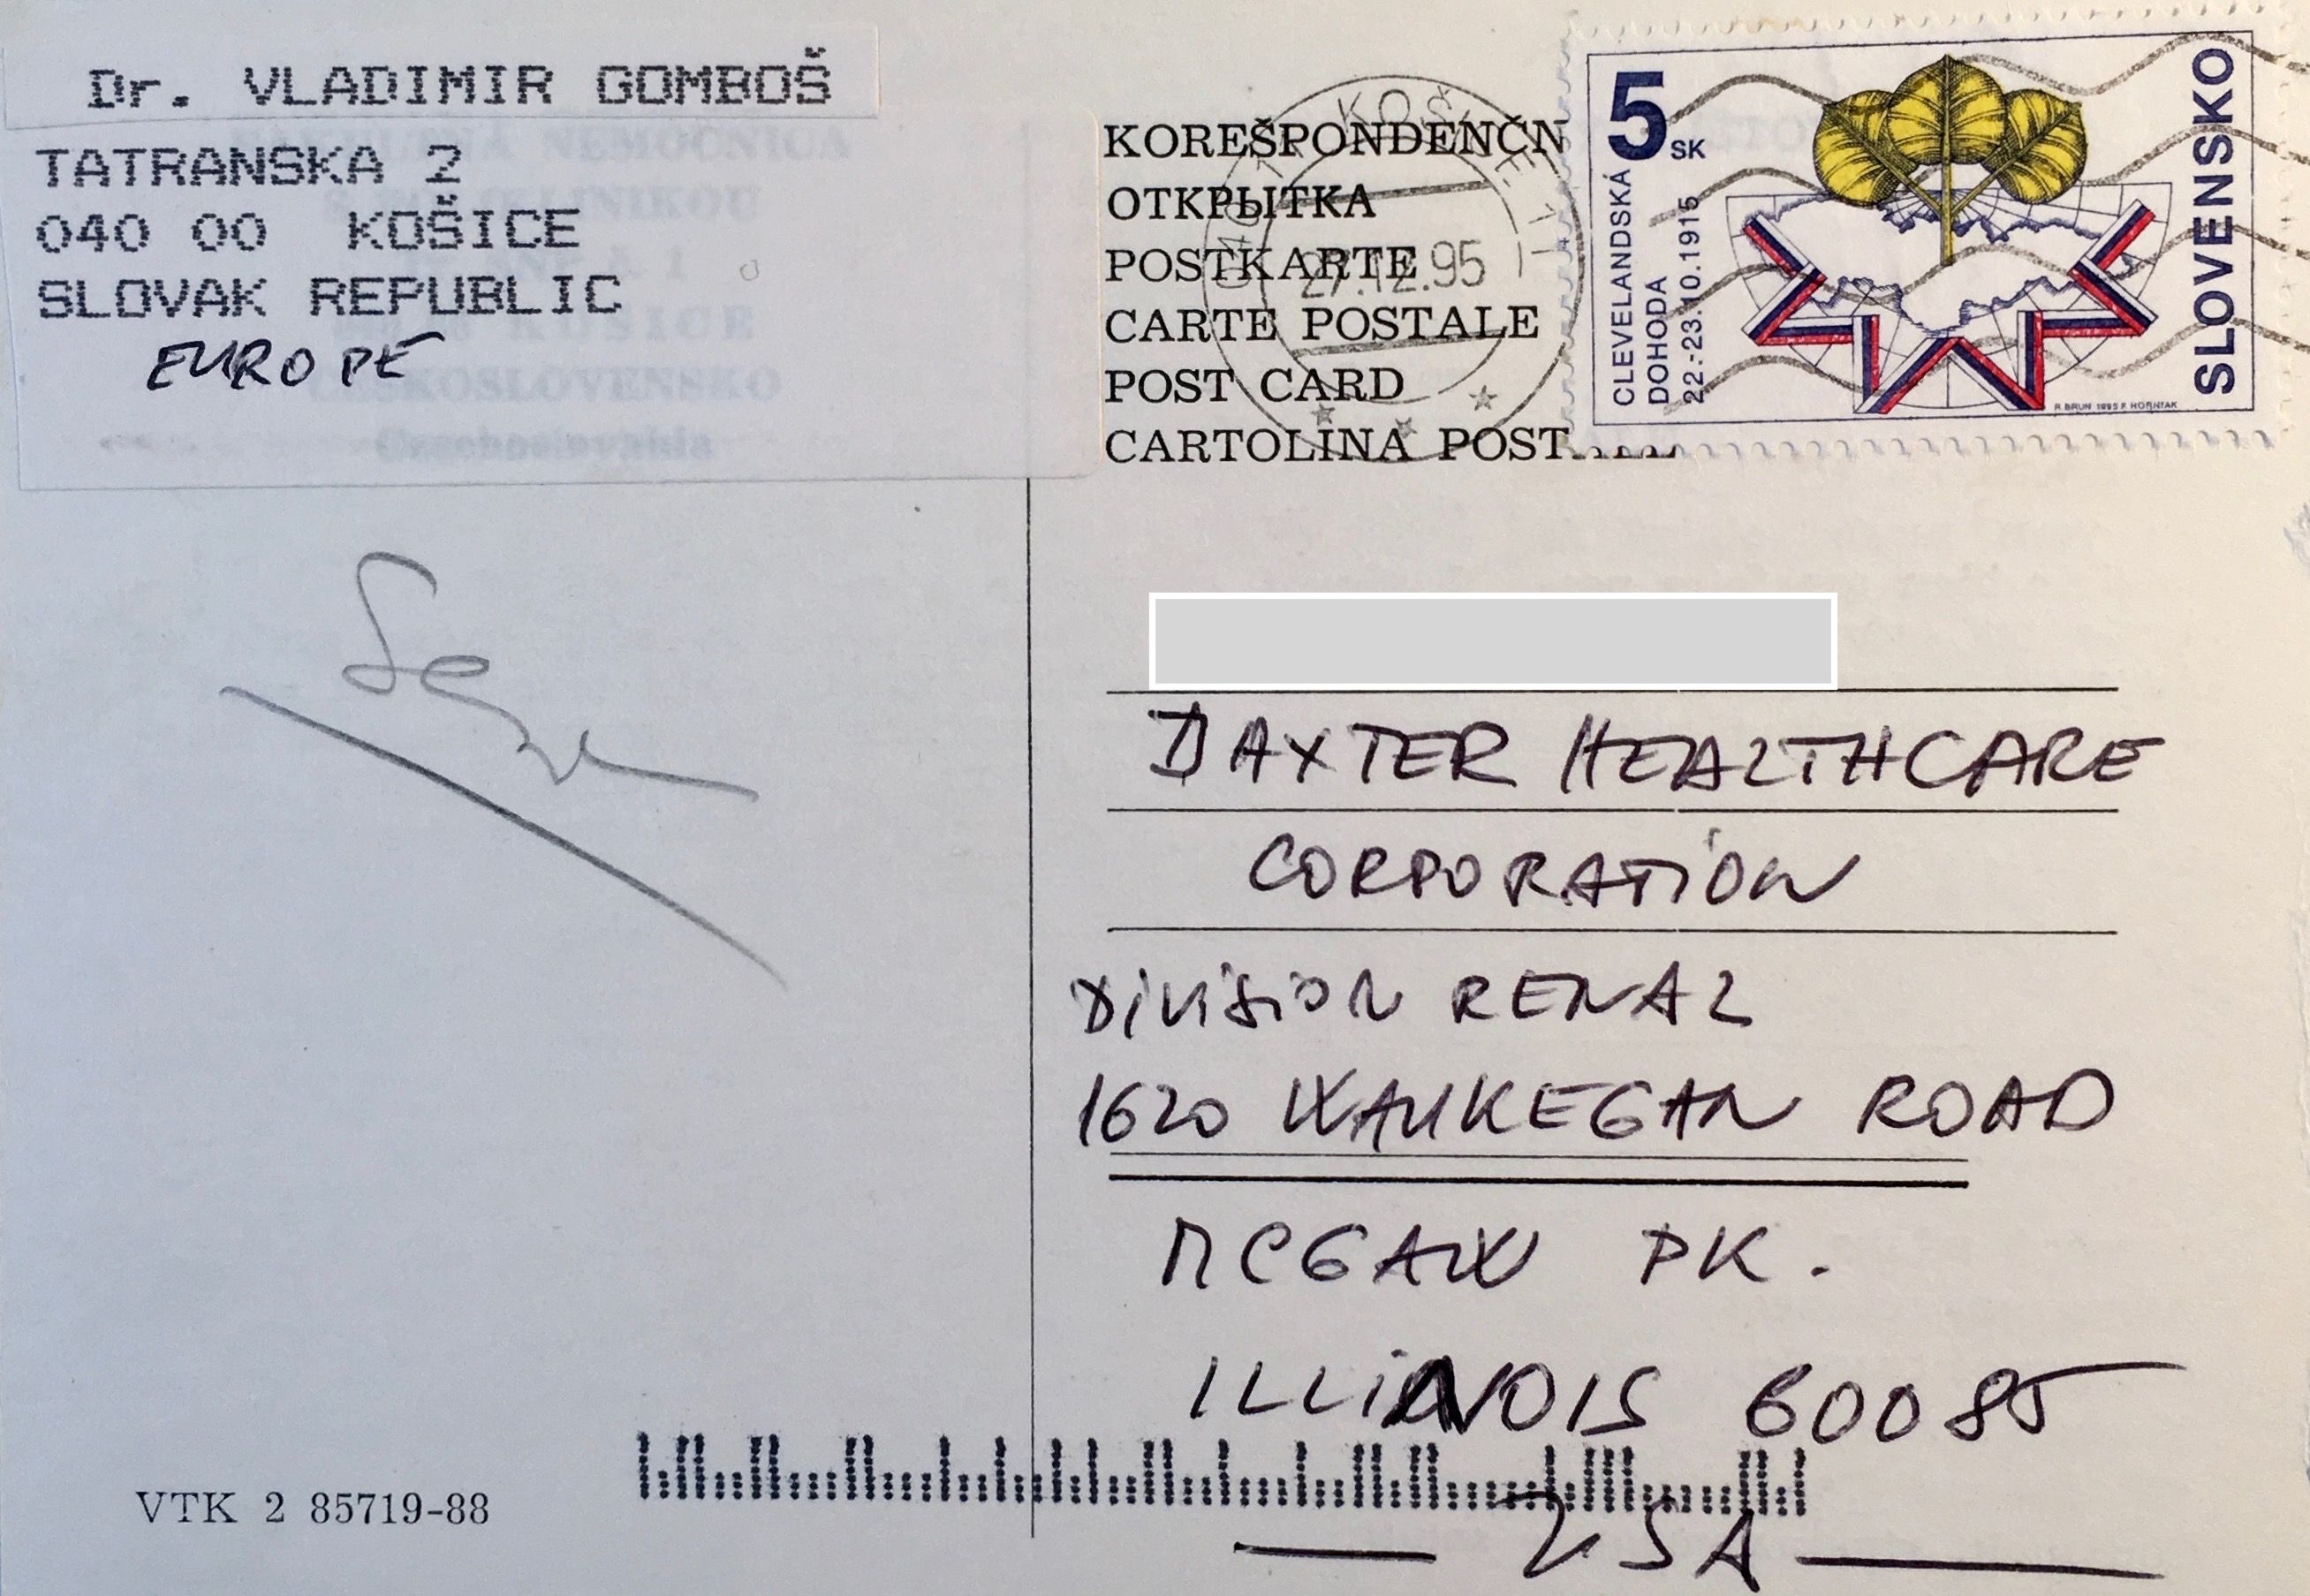 Dr. VLADIMIR GOMBOŠ
TATRANSKA 2
040 00 KOŠICE
SLOVAK REPUBLIC
EUROPE
FAKULTNÁ NEMOCNICA
KOŠICE
ČESKOSLOVENSKO
Czechoslovakia
KOREŠPONDENČN
ОТКРЫТКА
POSTKARTE
CARTE POSTALE
POST CARD
CARTOLINA POST
KOŠICE
27.12.95
5 SK
CLEVELANDSKÁ
DOHODA
22.-23.10.1915
SLOVENSKO
R. BRUN 1995 F. HORNIAK
BAXTER HEALTHCARE
CORPORATION
DIVISION RENAL
1620 WAUKEGAN ROAD
MCGAW PK.
ILLINOIS 60085
USA
VTK 2 85719-88